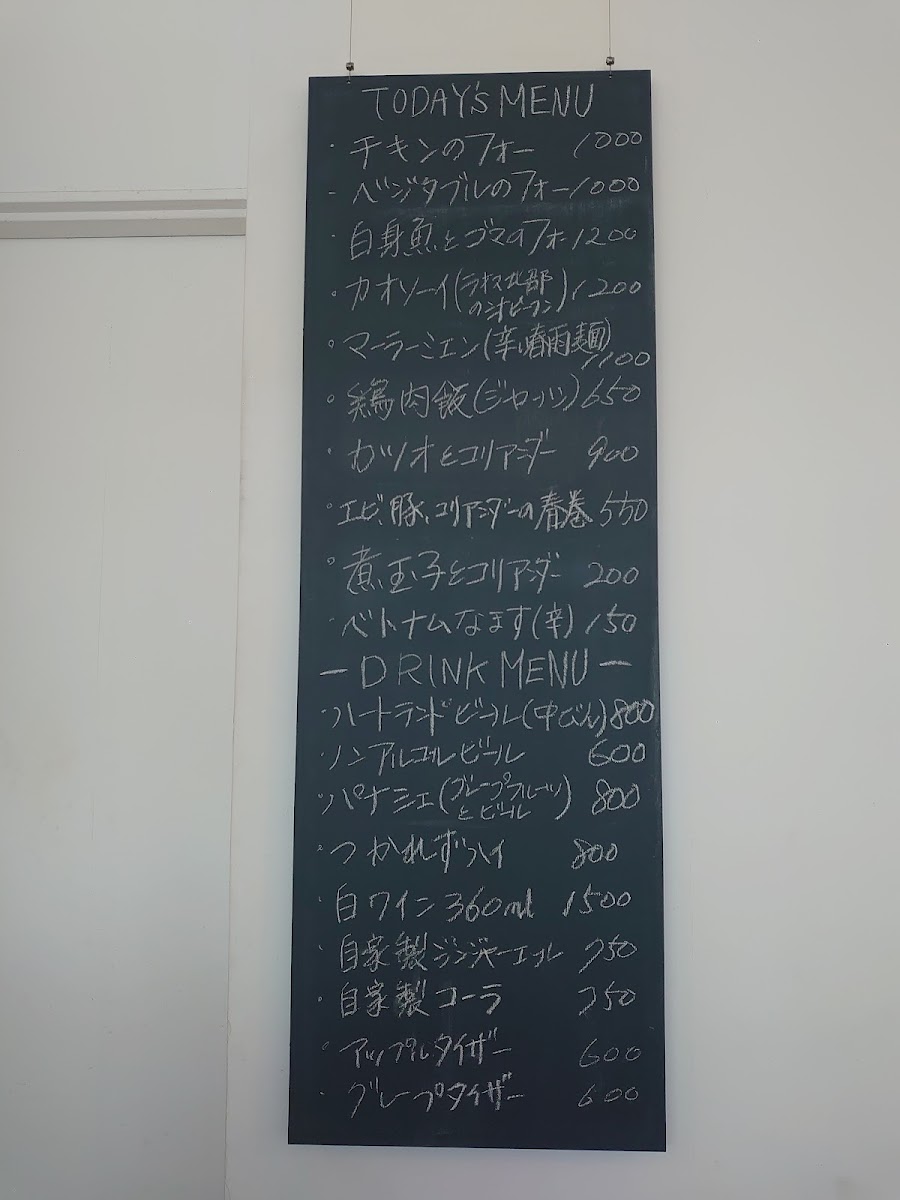 TODAY's MENU
・チキンのフォー 1000
・ベジタブルのフォー 1000
・白身魚とゴマのフォー 1200
・カオソーイ(ラオス北部の汁ビーフン) 1200
・マーラーミエン(辛い春雨麺) 1100
・鶏肉飯(ジーローハン) 650
・カツオとコリアンダー 900
・エビ、豚、コリアンダーの春巻 550
・煮玉子とコリアンダー 200
・ベトナムなます(辛) 150
ーDRINK MENUー
・ハートランドビール(中びん) 800
・ノンアルコールビール 600
・パナシェ(グレープフルーツとビール) 800
・つかれずハイ 800
・白ワイン 360ml 1500
・自家製ジンジャーエール 750
・自家製コーラ 750
・アップルタイザー 600
・グレープタイザー 600